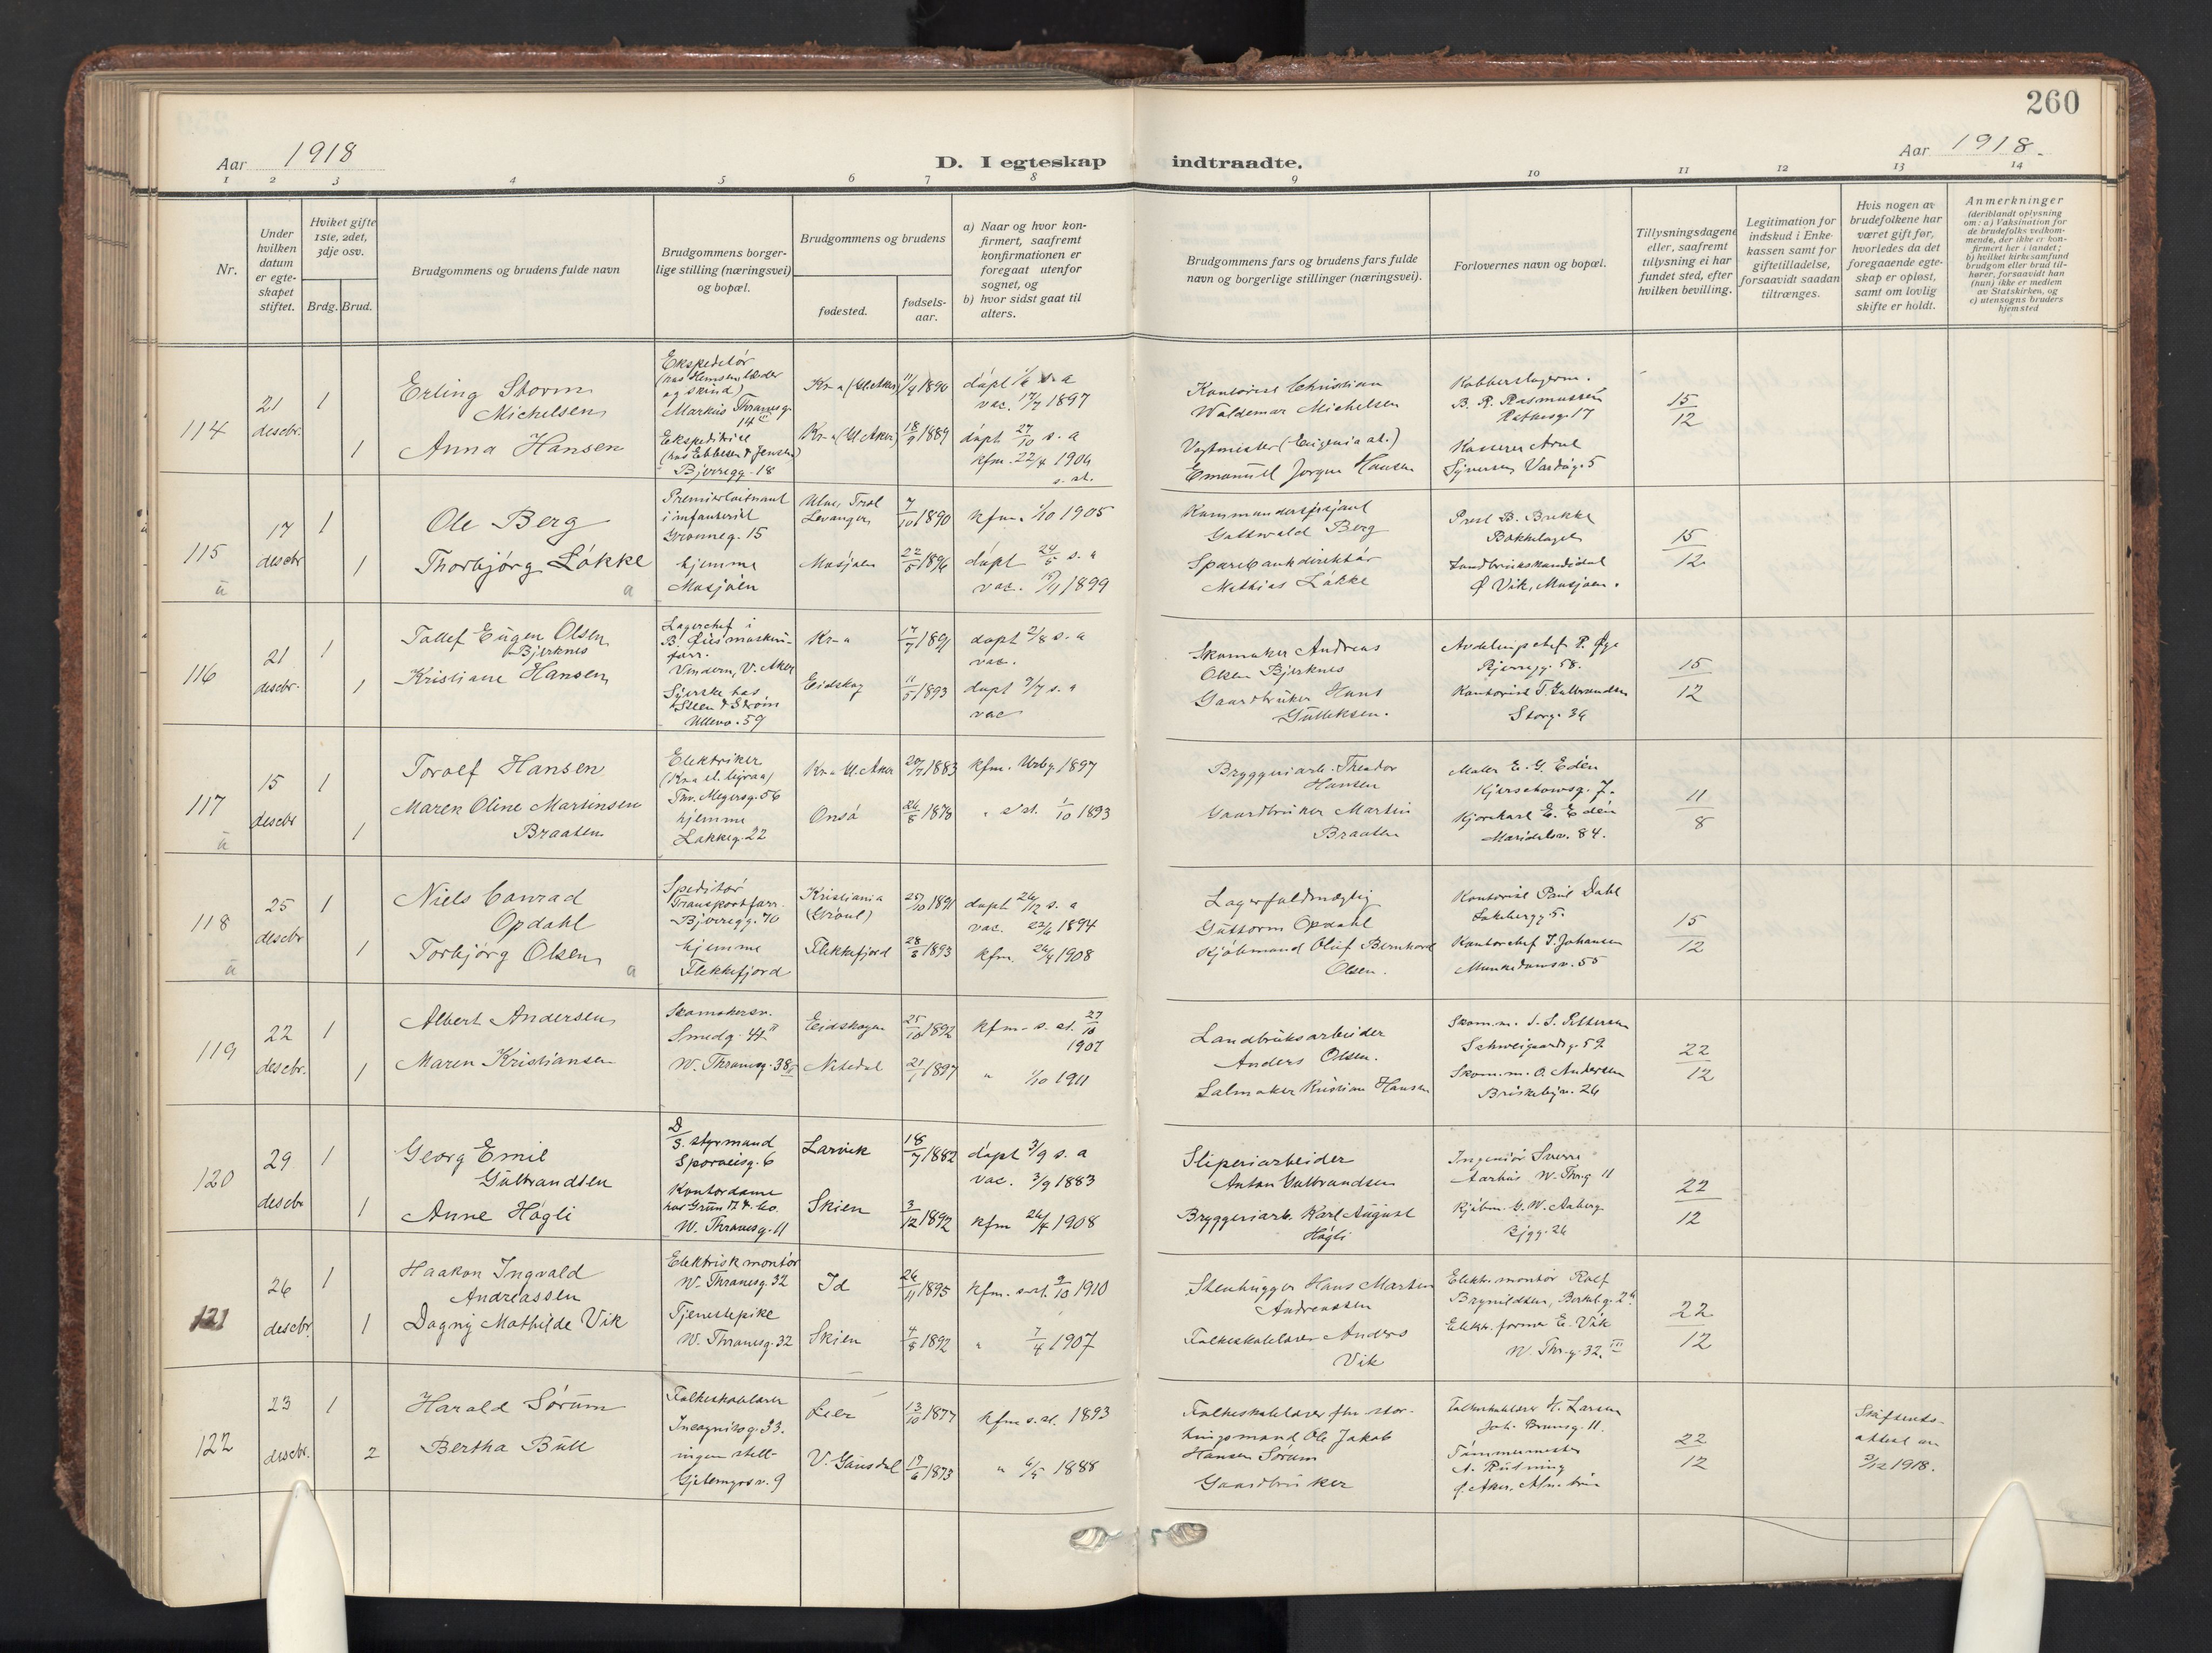 260
Aar 1918
D. I egteskap indtraadte.
Aar 1918.
1 2 3 4 5 6 7 8 9 10 11 12 13 14
Nr.
Under hvilken datum er egteskapet stiftet.
Hviket gifte 1ste, 2det, 3dje osv.
Brdg. Brud.
Brudgommens og brudens fulde navn
Brudgommens borgerlige stilling (næringsvei) og bopæl.
Brudgommens og brudens
fødested.
fødselsaar.
a) Naar og hvor konfirmert, saafremt konfirmationen er foregaat utenfor sognet, og
b) hvor sidst gaat til alters.
Brudgommens fars og brudens fars fulde navn og borgerlige stillinger (næringsvei).
Forlovernes navn og bopæl.
Tillysningsdagene eller, saafremt tillysning ei har fundet sted, efter hvilken bevilling.
Legitimation for indskud i Enkekassen samt for giftetilladelse, forsaavidt saadan tiltrænges.
Hvis nogen av brudefolkene har været gift før, hvorledes da det foregaaende egteskap er opløst, samt om lovlig skifte er holdt.
Anmerkninger
(deriblandt oplysning om: a) Vaksination for de brudefolks vedkommende, der ikke er konfirmert her i landet;
b) hvilket kirkesamfund brudgom eller brud tilhører, forsaavidt han (hun) ikke er medlem av Statskirken, og
c) utensogns bruders hjemsted
114
21 descbr.
1
Erling Storm
Michelsen
Ekspeditør
Markus Thranesg.
14 II
11/4 1890
døpt 1/6 s. a
vac. 17/7 1897
Kontorist Christian
Waldemar Michelsen
Kobberslagerm.
B. R. Rasmussen
Rathkesg. 17
15/12
1
Anna Hansen
Ekspeditrise
(hos Ebbesen & Jensen)
Bjerregg. 18
Kr-a (Gl. Aker)
18/9 1889
døpt 27/10 s. a
kfm. 22/4 1904
s. st.
Vagtmester (Eugenia st.)
Emanuel Jørgen Hansen
Kasserer Arne
Syversen Vardøg. 5
115
17 desebr
1
Ole Berg
Premierløitnant
i infanteriet
Grønneg. 15
Levanger
7/10 1890
kfm. 1/10 1905
Kommandersersjant
Gottwald Berg
Prest B. Brekke
Bækkelaget
15/12
1
Thorbjørg Løkke
hjemme
Mosjøen
Mosjøen
22/5 1896
døpt 24/5 s. a
vac. 1899
Sparebankdirektør
Mathias Løkke
Landbrukskandidat
Ø Vik, Mosjøen.
116
21 desebr.
1
Tollef Eugen Olsen
Bjerknes
Lagerchef i
Vindern, V. Aker
Kr-a
17/7 1891
døpt 2/8 s. a
vac.
Skomaker Andreas
Olsen Bjerknes
Avdelingschef P. Øye
Bjerregg. 58.
15/12
1
Kristiane Hansen
Syerske hos
Steen & Strøm
Ullevv. 59
Eidskog
11/5 1893
døpt 9/7 s. a
vac
Gaardbruker Hans
Gulleksen.
Kontorist T. Gulbrandsen
Storg. 34
117
15 desebr
1
Toralf Hansen
Elektriker
Thv. Meyersg. 56
Kr-a Gl. Aker
20/7 1883
kfm. Urbg. 1897
Bryggeriarb. Theodor
Hansen
Maler E. G. Edén
Kjerschowsg. 7.
11/8
1
Maren Oline Martinsen
Braaten
hjemme
Lakkeg. 22
Onsø
26/8 1878
" s. st. 1/10 1893
Gaardbruker Martin
Braaten
Kjørekarl E. Edén
Maridalsv. 84.
118
25 desebr
1
Niels Conrad
Opdahl
Speditør
Transportforr.
Bjerregg. 70
Kristiania
(Grønl)
25/10 1891
døpt 26/12 s. a
vac. 22/6 1894
Lagerfuldmægtig
Guttorm Opdahl
Kontorist Paul Dahl
Jakobsgg 5.
15/12
1
Torbjørg Olsen
hjemme
Flekkefjord
Flekkefjord
28/3 1893
kfm. 26/4 1908
Kjøbmand Oluf Bernhard
Olsen.
Kontorchef J. Johansen
Munkedamsv. 55
119
22 desebr.
1
Albert Andersen
Skomakersv.
Smedg. 44 II
Eidskogen
25/10 1892
kfm. s. st. 27/10
1907
Landbruksarbeider
Anders Olsen.
Skom.m. J. S. Pettersen
Schweigaardsg. 59
22/12
1
Maren Kristiansen
W. Thranesg. 38
Nitedal
21/1 1897
" 1/10 1911
Salmaker Kristian Hansen
Skom.m. O. Andersen
Briskebyv. 26
120
29 desebr
1
Georg Emil
Gulbrandsen
D/S. styrmand
Sporveisg. 6
Larvik
18/7 1882
døpt 3/9 s. a
vac. 3/9 1883
Sliperiarbeider
Anton Gulbrandsen
Ingeniør Sverre
Aarhus W. Thrg 11
22/12
1
Anne Høgli
Kontordame
W. Thranesg. 11
Skien
3/12 1892
kfm 26/4 1908
Bryggeriarb. Karl August
Høgli
Kjøbm. G. W. Aaberg
Bjgg. 26
121
26 desebr.
1
Haakon Ingvald
Andreassen
Elektrisk montør
W. Thranesg. 32
Id
26/11 1895
kfm. s. st. 9/10 1910
Stenhugger Hans Martin
Andreassen
Elektr. montør Rolf
Brynildsen,
22/12
1
Dagny Mathilde Vik
Tjenestepike
W. Thranesg. 32
Skien
4/8 1892
" 7/4 1907
Folkeskolelærer Anders
Vik
Elektr. former E. Vik
W. Thr.g. 32. III
122
23 desebr.
1
Harald Sørum
Folkeskolelærer
Incognitog. 33.
Lier
13/10 1877
kfm. s. st. 1893
Folkeskolelærer fhv stortingsmand Ole Jakob
Hansen Sørum
Folkeskolelærer H. Larsen
Joh. Brunsg. 11.
22/12
Skifteretsattest av
3/12 1918.
2
Bertha Bull
ingen still-
Gjetemyrsv. 9
V. Gausdal
17/6 1873
" 6/5 1888
Gaardbruker
Tømmermester